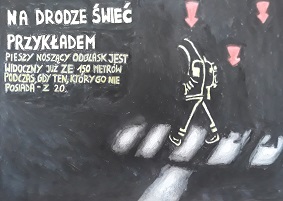 NA DRODZE ŚWIEĆ
PRZYKŁADEM
PIESZY NOSZĄCY ODBLASK JEST
WIDOCZNY JUŻ ZE 150 METRÓW
PODCZAS, GDY TEN, KTÓRY GO NIE
POSIADA - Z 20.